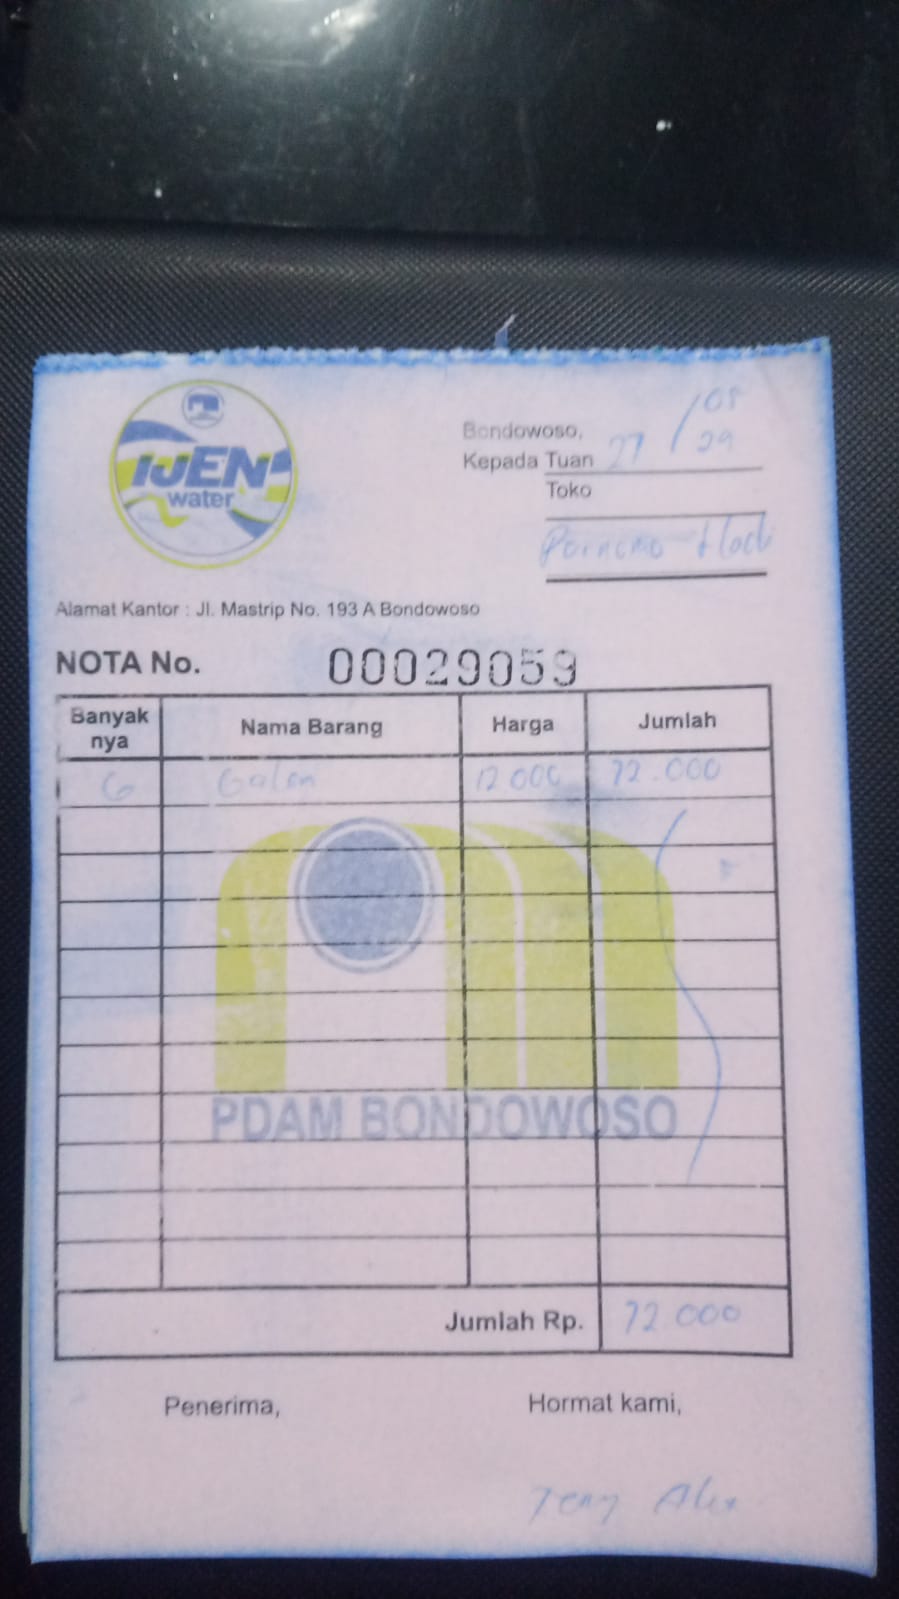 IJEN
water
Bondowoso,
27 / 08
Kepada Tuan
Toko
Alamat Kantor : Jl. Mastrip No. 193 A Bondowoso
NOTA No. 00029059
Banyak nya Nama Barang Harga Jumlah
6 Galon 12 000 72.000
PDAM BONDOWOSO
Jumlah Rp. 72 000
Penerima, Hormat kami,